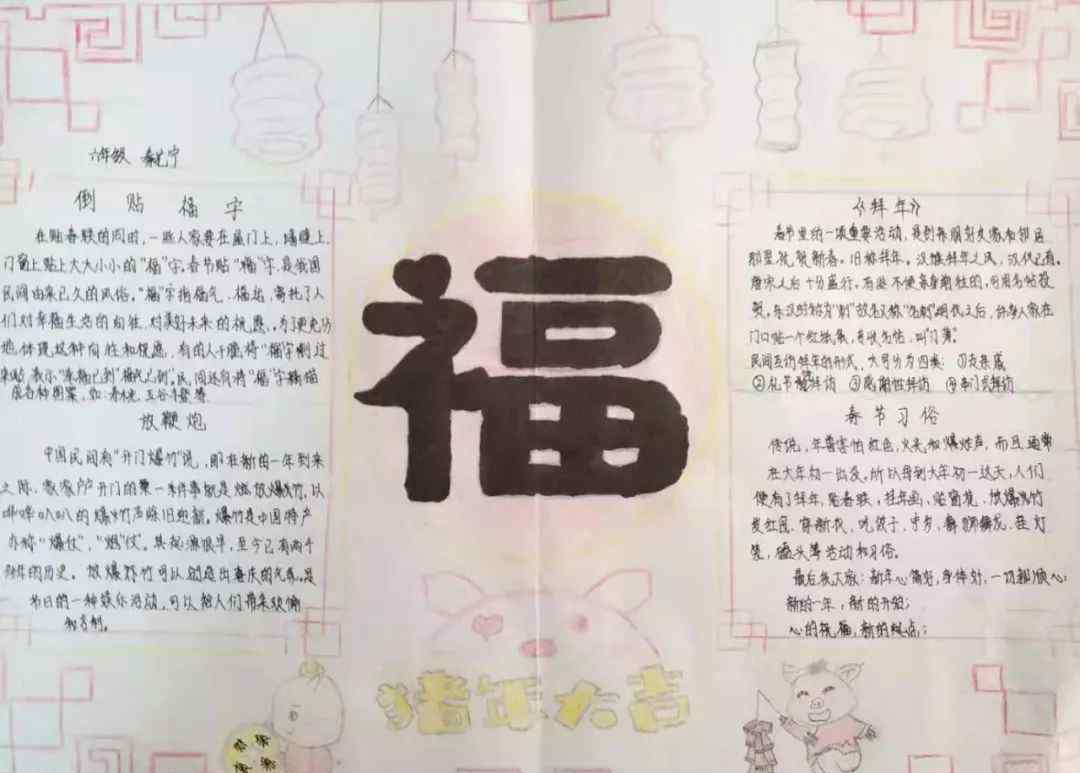 六年级
倒贴福字
在贴春联的同时，一些人家要在屋门上，墙壁上，
门窗上贴上大大小小的“福”字。春节贴“福”字，是我国
民间由来已久的风俗。“福”字指福气，福运，寄托了人
们对幸福生活的向往，对美好未来的祝愿。为了更充分
地体现这种向往和祝愿，有的人干脆将“福”字倒过
来贴，表示“幸福已到”“福气已到”。民间还有将“福”字精描
成各种图案，如：寿桃，五谷丰登等
放鞭炮
中国民间有“开门爆竹”说，即在新的一年到来
之际，家家户户开门的第一件事就是燃放爆竹，以
哔哔叭叭的爆竹声除旧迎新。爆竹是中国特产
亦称“爆仗”，“
其起源很早，至今已有两千
多年的历史。放爆竹可以创造出喜庆的气氛，是
节日的一种娱乐活动，可以给人们带来欢愉
和吉利。
福
猪年大吉
《拜年》
春节里的一项重要活动，是到亲朋好友家和邻居
那里祝贺新春，旧称拜年。汉族拜年之风，汉代已有。
唐宋之后十分盛行，有些不便亲身前往的，可用名帖投
贺。东汉时称为“刺”故名又称“名刺”明代之后，许多人家在
门口贴一个红纸袋，专收名帖，叫“门簿”。
民间互访拜年的形式，大可分为四类：①走亲戚
②礼节性拜访 ③感谢性拜访 ④串门式拜访
春节习俗
传说，年兽害怕红色，火光和爆炸声，而且通常
在大年初一出没，所以每到大年初一这天，人们
便有了拜年，贴春联，挂年画，贴窗花，放爆竹
发红包，穿新衣，吃饺子，守岁，舞狮舞龙，挂灯
笼，磕头等活动和习俗。
最后祝大家：新年心情好，身体好，一切都顺心；
新的一年，新的开始；
心的祝福，新的起点；